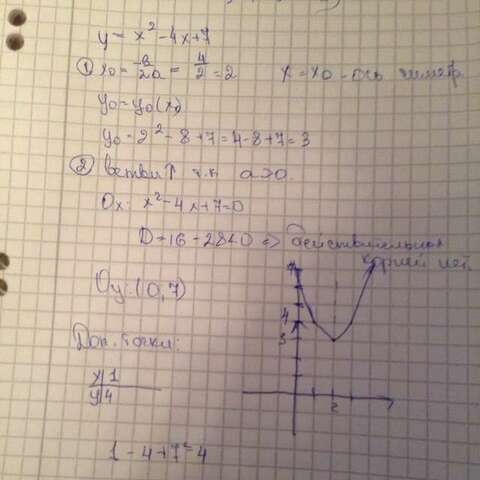 y = x² - 4x + 7
① x₀ = -в/2a = 4/2 = 2 x = x₀ - ось симметр.
y₀ = y₀(x₀)
y₀ = 2² - 8 + 7 = 4 - 8 + 7 = 3
② ветви ↑ т.к a > 0.
Ox: x² - 4x + 7 = 0
D = 16 - 28 < 0 => действительных
корней нет.
Oy: (0, 7)
Доп. точки:
x | 1
y | 4
1 - 4 + 7 = 4
7
4
3
2